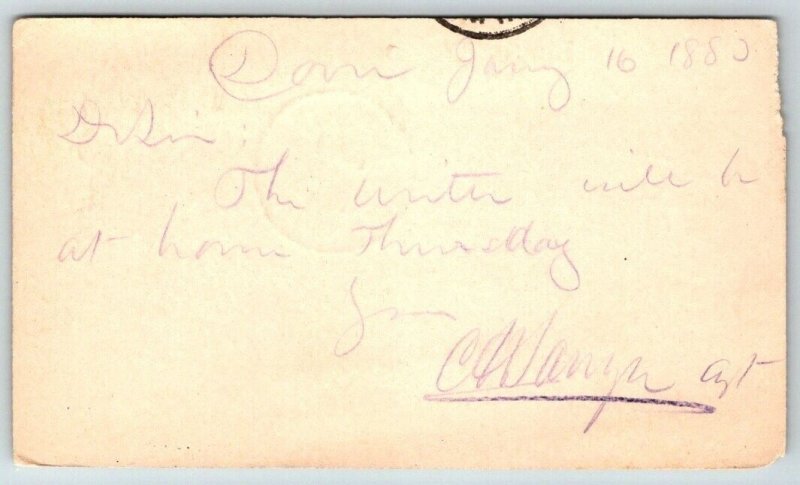 Jany 16 188
Dr Sir:
The writer will be
at home Thursday
Yours
agt